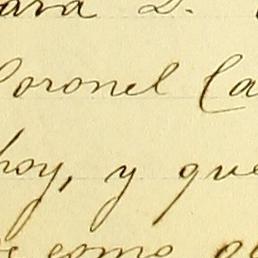 ara D.
Coronel Ca
hoy, y que
como